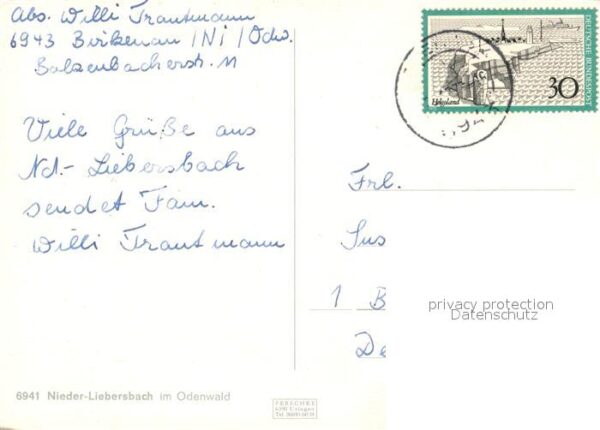 Abs. Willi Trautmann
6943 Birkenau / Ni / Odw.
Balzenbacherstr. 11
Viele Grüße aus
Nd.-Liebersbach
sendet Fam.
Willi Trautmann
DEUTSCHE BUNDESPOST
Helgoland
30
Frl.
Sus
1 B
De
privacy protection
Datenschutz
6941 Nieder-Liebersbach im Odenwald